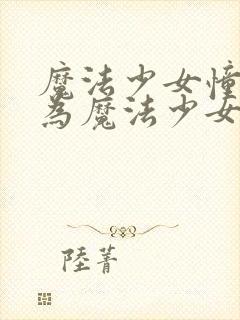 魔法少女憧
為魔法少女
陸菁